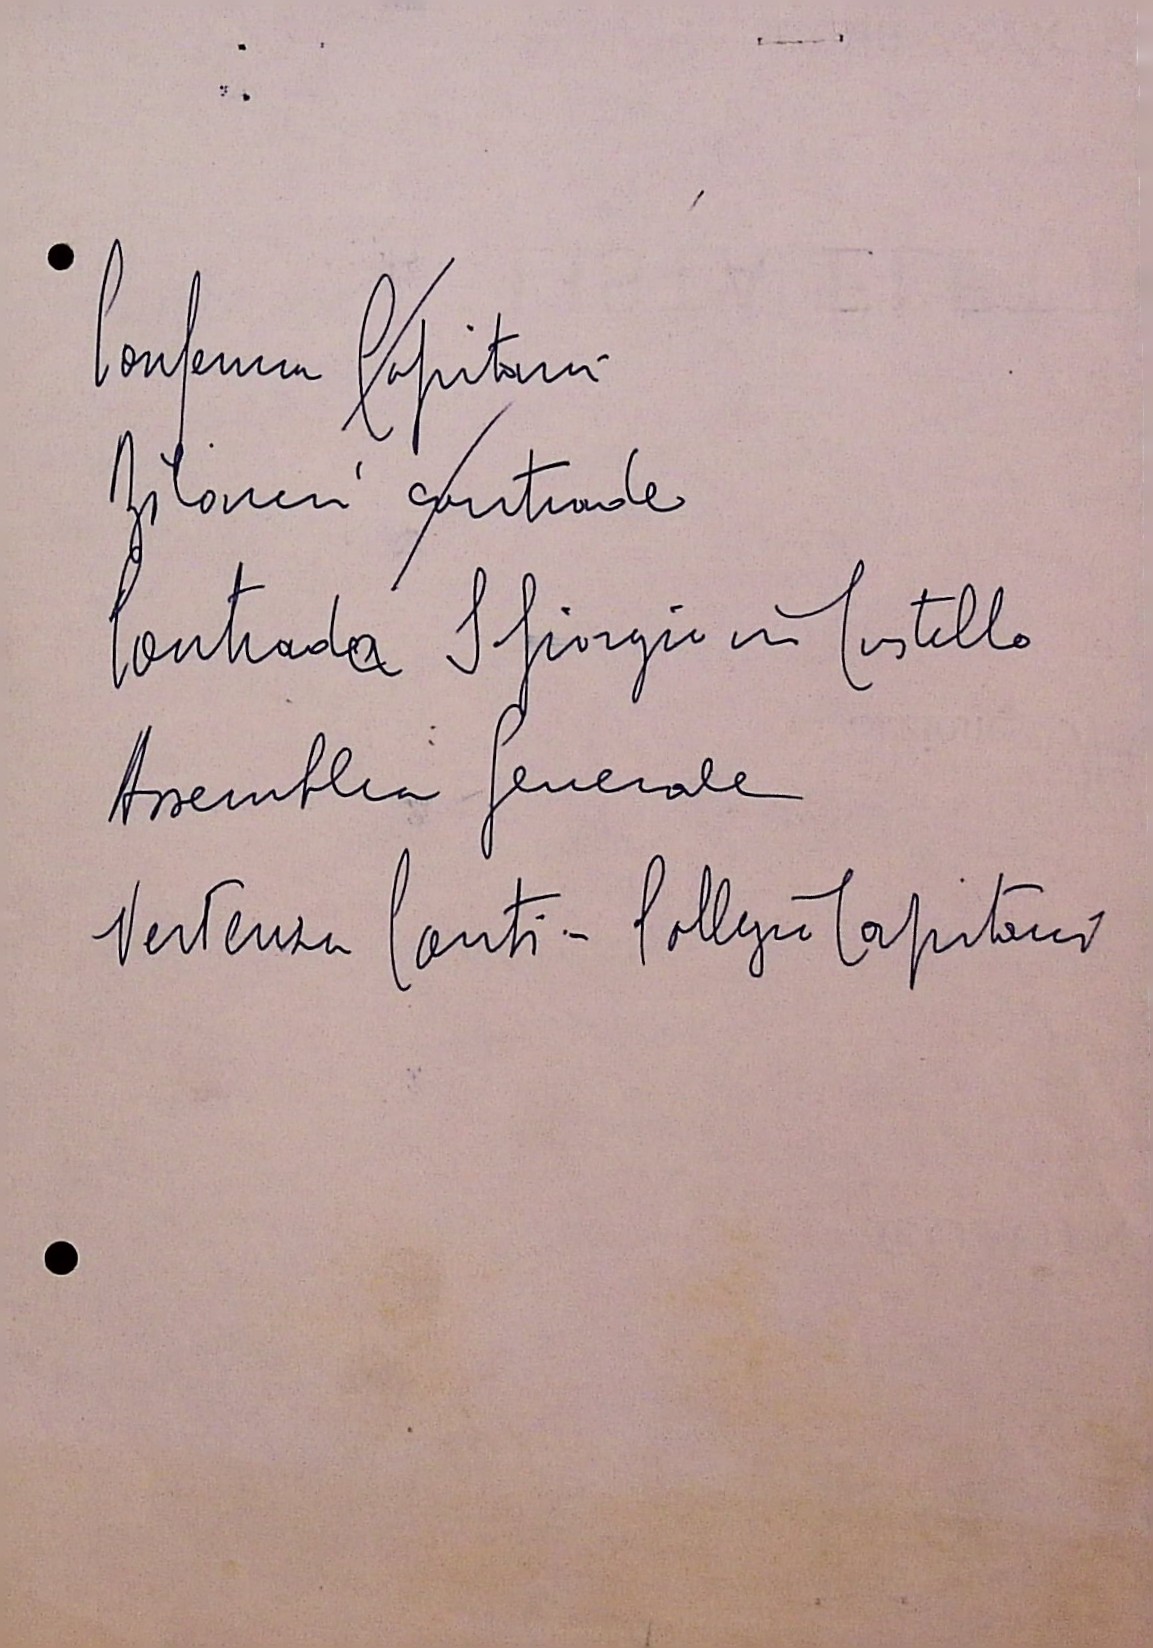 Conferma Capitani
Bilanci contrade
Contrada S Giorgio in Castello
Assemblea Generale
Vertenza Conti - Collegio Capitani